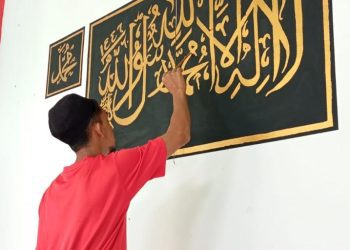 لا إله إلا الله محمد رسول الله
محمد